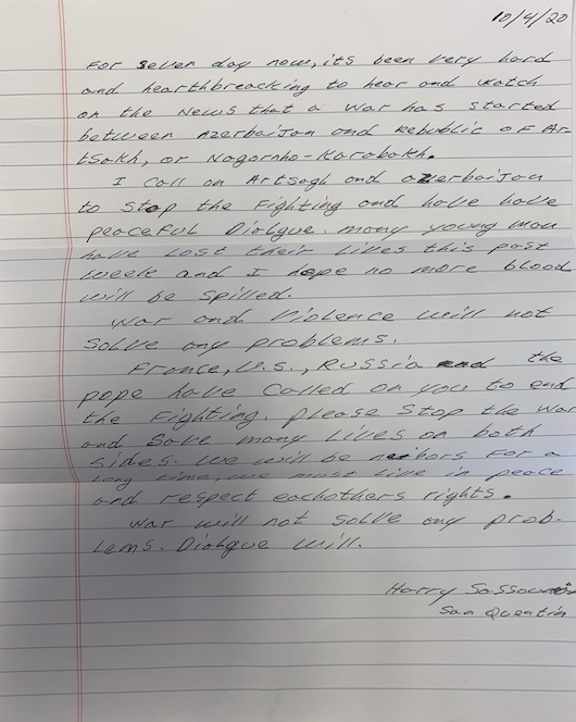 10/4/20
For seven day now, its been very hard
and hearthbreacking to hear and watch
on the News that a war has started
between Azerbaijan and Rebublic of Ar-
tsakh, or Nagornho-Karabakh.
I call on Artsagh and azerbaijan
to stop the Fighting and have have
peaceful Dialgue. many young man
have lost their lives this past
week and I hope no more blood
will be spilled.
War and Violence will not
solve any problems.
France, U.S., Russia and the
pope have called on you to end
the Fighting. please stop the war
and save many lives on both
sides. we will be neibors for a
long time, we must live in peace
and respect eachothers rights.
War will not solve any prob-
lems. Dialgue will.
Harry Sassounian
San Quentin